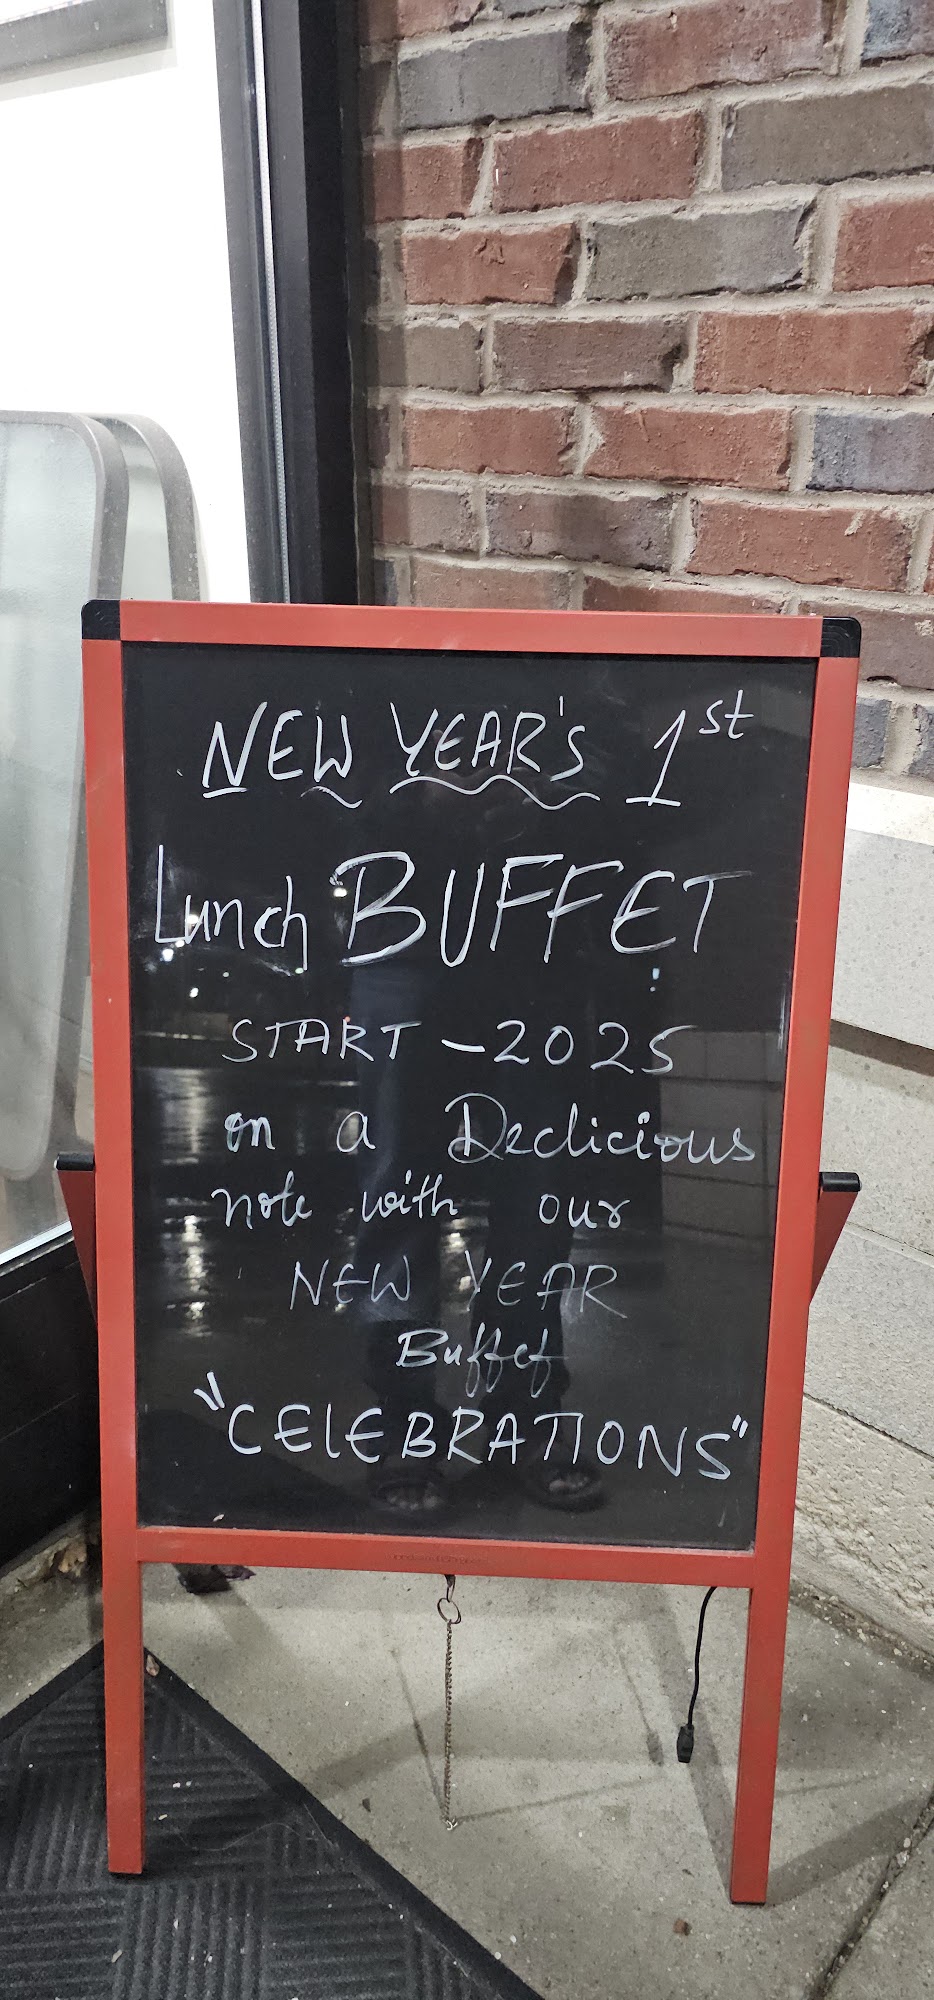 NEW YEAR'S 1st
Lunch BUFFET
START - 2025
on a Declicious
note with our
NEW YEAR
Buffet
"CELEBRATIONS"